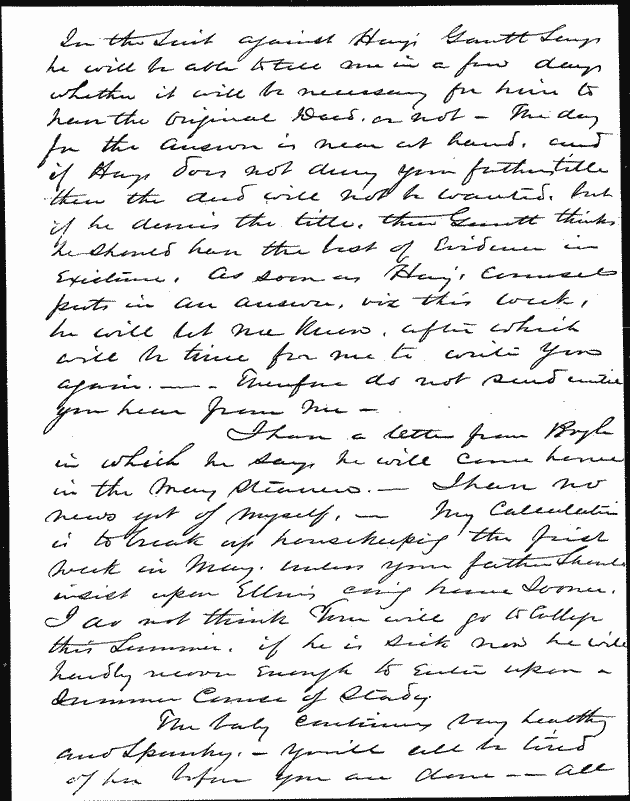 In the Suit against Hays Gantt Says
he will be able to tell me in a few days
whether it will be necessary for him to
have the original Deed, or not — The day
for the answer is near at hand, and
if Hays does not deny your father's title
then the deed will not be wanted, but
if he denies the title, then Gantt thinks
he should have the best of Evidence in
Existence. As soon as Hays' Counsel
puts in an answer, viz this week,
he will let me know, after which
will be time for me to write you
again. — — Therefore do not send until
you hear from me —
I have a letter from
in which he says he will come home
in the May Steamers. — I have no
news yet of myself. — My Calculation
is to break up housekeeping the first
week in May, unless your father Should
insist upon Ellen's going home Sooner.
I do not think Tom will go to College
this Summer, if he is sick now he will
hardly recover Enough to Enter upon a
Summer Course of Study
The baby continues very healthy
and Spunky. — You will all be tired
of her before you are done — — All